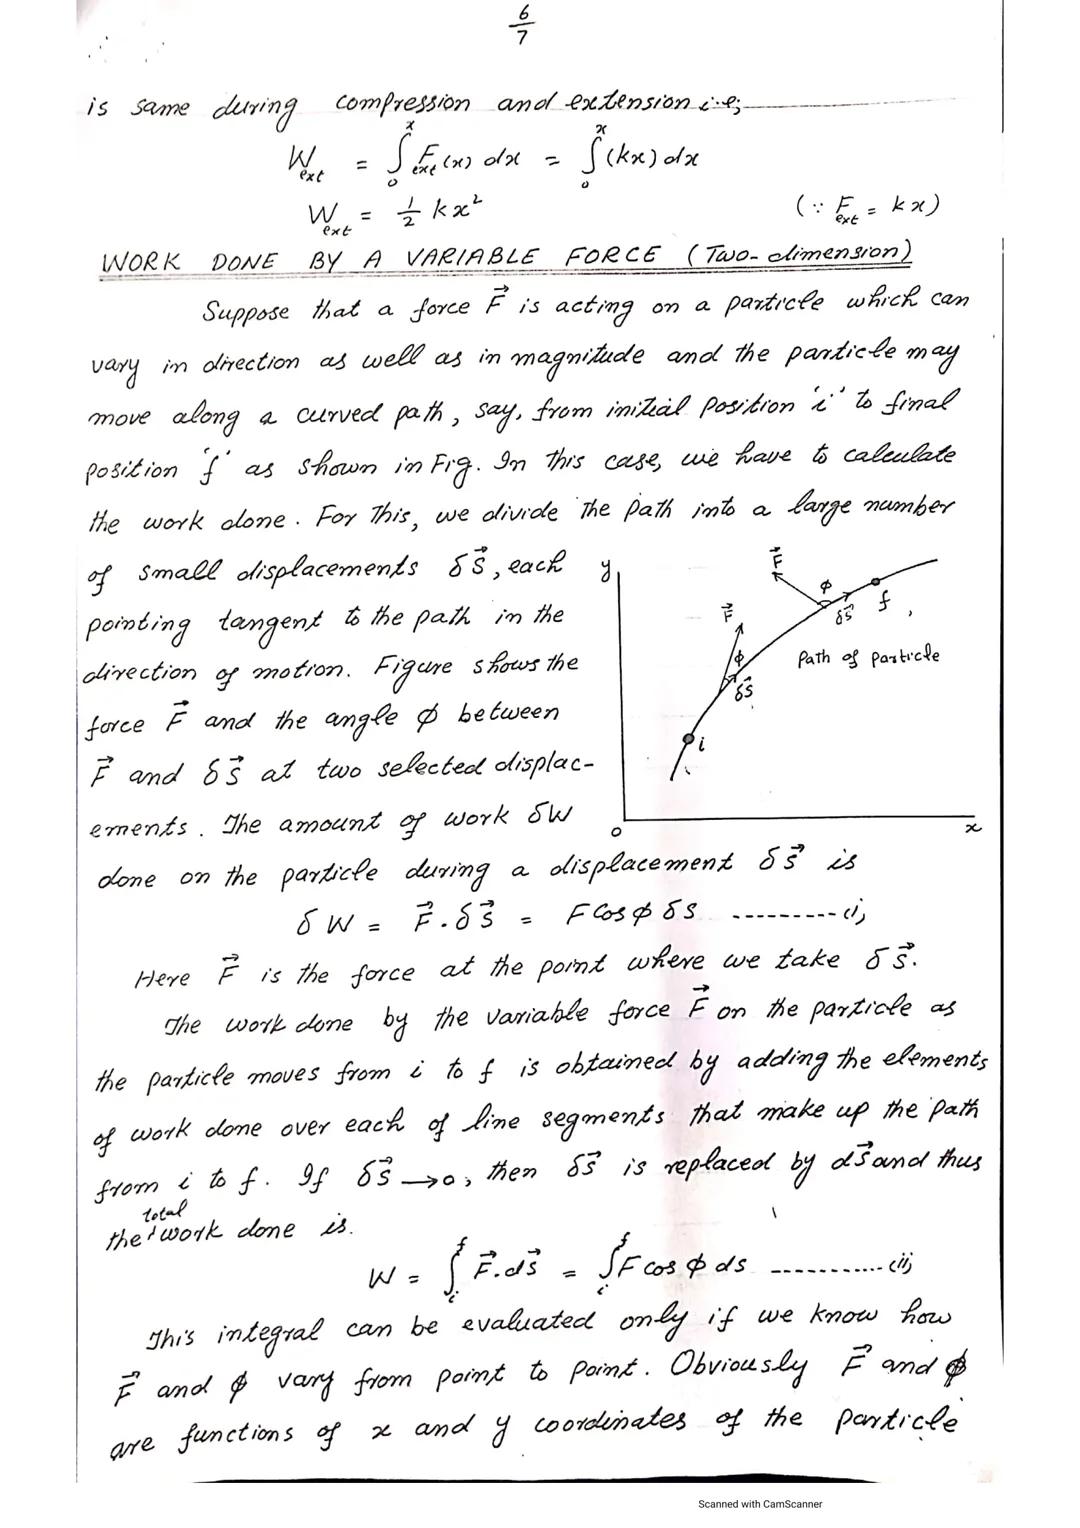 6/7
is same during compression and extension i.e;
W_ext = ∫₀ˣ F_ext(x) dx = ∫₀ˣ (kx) dx
W_ext = 1/2 kx² (∵ F_ext = kx)
WORK DONE BY A VARIABLE FORCE (Two-dimension)
Suppose that a force F⃗ is acting on a particle which can
vary in direction as well as in magnitude and the particle may
move along a curved path, say, from initial position 'i' to final
position 'f' as shown in Fig. In this case, we have to calculate
the work done. For this, we divide the path into a large number
of small displacements δS⃗, each
pointing tangent to the path in the
direction of motion. Figure shows the
force F⃗ and the angle φ between
F⃗ and δS⃗ at two selected displac-
ements. The amount of work δW
y
F⃗
φ
δS⃗
f
F⃗
φ
δS⃗
Path of particle
i
o
x
done on the particle during a displacement δS⃗ is
δW = F⃗.δS⃗ = F Cos φ δS ---------(i)
Here F⃗ is the force at the point where we take δS⃗.
The work done by the variable force F⃗ on the particle as
the particle moves from i to f is obtained by adding the elements
of work done over each of line segments that make up the path
from i to f. If δS⃗ → 0, then δS⃗ is replaced by dS⃗ and thus
the total work done is.
W = ∫ᵢᶠ F⃗.dS⃗ = ∫ᵢᶠ F cos φ ds -----------(ii)
This integral can be evaluated only if we know how
F⃗ and φ vary from point to point. Obviously F⃗ and φ
are functions of x and y coordinates of the particle
Scanned with CamScanner